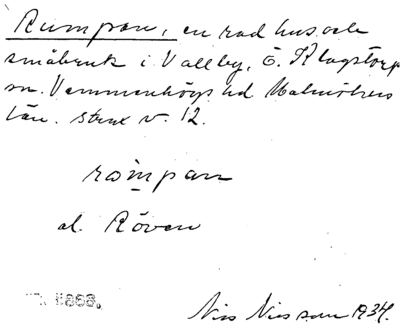 Rumpan, en rad hus och
småbruk i Vallby, Ö. Klagstorp
sn. Vemmenhögs hd Malmöhus
län. strax v. 12.
rompan
al. Röven
8868.
Nils Nilsson 1934.